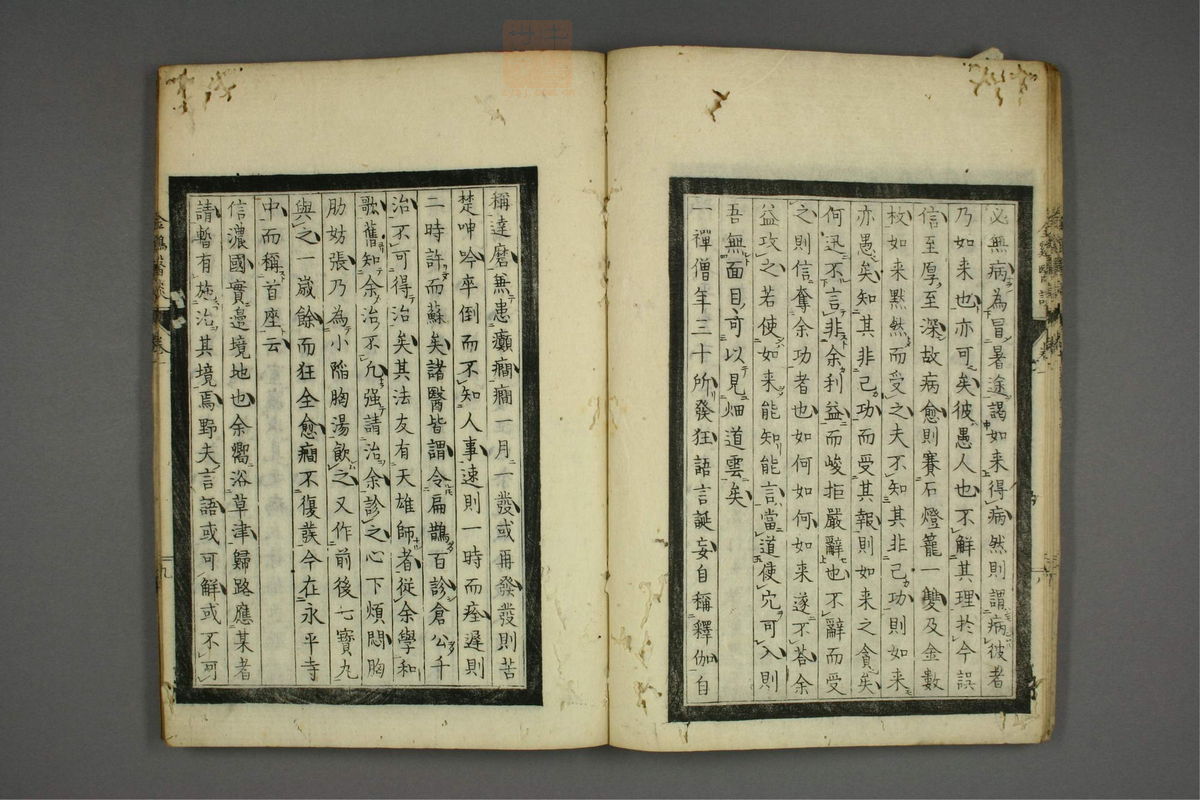 必無病為冒暑途謁如来得病然則謂病彼者
乃如来也亦可矣彼愚人也不解其理於今誤
信至厚至深故病愈則賽石燈籠一雙及金數
枚如来黙然而受之夫不知其非己功則如来
亦愚矣知其非己功而受其報則如来之貪矣
何迅不言非余利益而峻拒嚴辭也不辭而受
之則信奪余功者也如何如何如来遂不荅余
益攻之若使如来能知能言當道使穴可入則
吾無面目可以見畑道雲矣
一禪僧年三十所發狂語言誕妄自稱釋伽自
稱達磨兼患癲癇癇一月一發或再發發則苦
楚呻吟卒倒而不知人事速則一時而痊遲則
二時許而蘇矣諸醫皆謂令扁鵲百診倉公千
治不可得治矣其法友有天雄師者從余學和
歌舊知余治不凢強請治余診之心下煩悶胸
肋妨張乃為小陥胸湯飲之又作前後七寳九
與之一歳餘而狂全愈癇不復發今在永平寺
中而稱首座云
信濃國實邉境地也余嚮浴草津歸路應某者
請暫有施治其境焉野夫言語或可解或不可